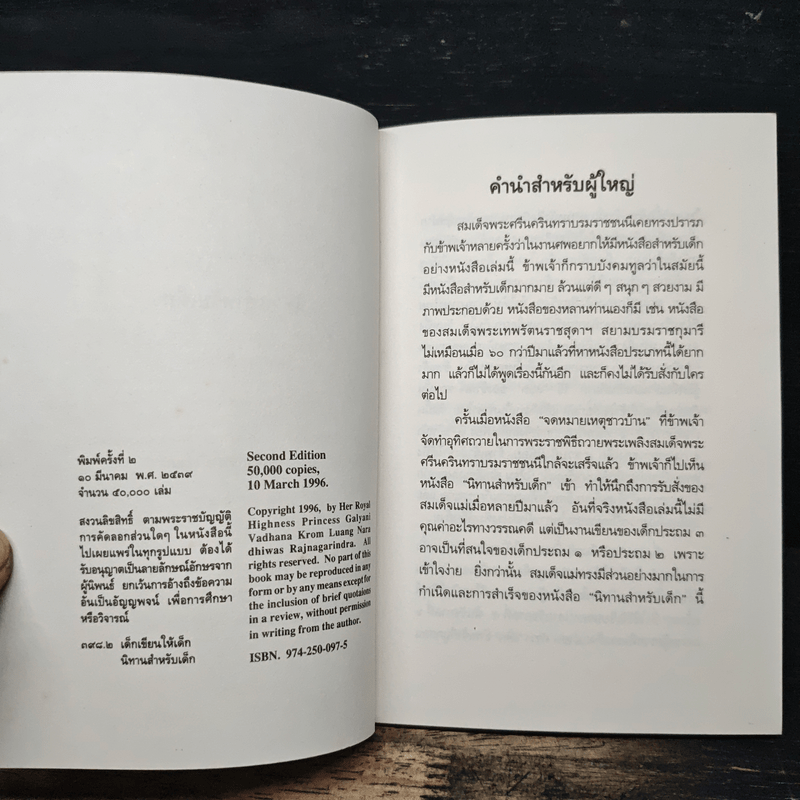 พิมพ์ครั้งที่ ๒
๑๐ มีนาคม พ.ศ. ๒๕๓๙
จำนวน ๕๐,๐๐๐ เล่ม
สงวนลิขสิทธิ์ ตามพระราชบัญญัติ
การคัดลอกส่วนใดๆ ในหนังสือนี้
ไปเผยแพร่ในทุกรูปแบบ ต้องได้
รับอนุญาตเป็นลายลักษณ์อักษรจาก
ผู้นิพนธ์ ยกเว้นการอ้างถึงข้อความ
อันเป็นอัญญพจน์ เพื่อการศึกษา
หรือวิจารณ์
๓๙๘.๒ เด็กเขียนให้เด็ก
นิทานสำหรับเด็ก
Second Edition
50,000 copies,
10 March 1996.
Copyright 1996, by Her Royal
Highness Princess Galyani
Vadhana Krom Luang Nara
dhiwas Rajnagarindra. All
rights reserved. No part of this
book may be reproduced in any
form or by any means except for
the inclusion of brief quotaions
in a review, without permission
in writing from the author.
ISBN. 974-250-097-5
คำนำสำหรับผู้ใหญ่
สมเด็จพระศรีนครินทราบรมราชชนนีเคยทรงปรารภ
กับข้าพเจ้าหลายครั้งว่าในงานศพอยากให้มีหนังสือสำหรับเด็ก
อย่างหนังสือเล่มนี้ ข้าพเจ้าก็กราบบังคมทูลว่าในสมัยนี้
มีหนังสือสำหรับเด็กมากมาย ล้วนแต่ดีๆ สนุกๆ สวยงาม มี
ภาพประกอบด้วย หนังสือของหลานท่านเองก็มี เช่น หนังสือ
ของสมเด็จพระเทพรัตนราชสุดาฯ สยามบรมราชกุมารี
ไม่เหมือนเมื่อ ๖๐ กว่าปีมาแล้วที่หาหนังสือประเภทนี้ได้ยาก
มาก แล้วก็ไม่ได้พูดเรื่องนี้กันอีก และก็คงไม่ได้รับสั่งกับใคร
ต่อไป
ครั้นเมื่อหนังสือ "จดหมายเหตุชาวบ้าน" ที่ข้าพเจ้า
จัดทำอุทิศถวายในการพระราชพิธีถวายพระเพลิงสมเด็จพระ
ศรีนครินทราบรมราชชนนีใกล้จะเสร็จแล้ว ข้าพเจ้าก็ไปเห็น
หนังสือ "นิทานสำหรับเด็ก" เข้า ทำให้นึกถึงการรับสั่งของ
สมเด็จแม่เมื่อหลายปีมาแล้ว อันที่จริงหนังสือเล่มนี้ไม่มี
คุณค่าอะไรทางวรรณคดี แต่เป็นงานเขียนของเด็กประถม ๓
อาจเป็นที่สนใจของเด็กประถม ๑ หรือประถม ๒ เพราะ
เข้าใจง่าย ยิ่งกว่านั้น สมเด็จแม่ทรงมีส่วนอย่างมากในการ
กำเนิดและการสำเร็จของหนังสือ "นิทานสำหรับเด็ก" นี้